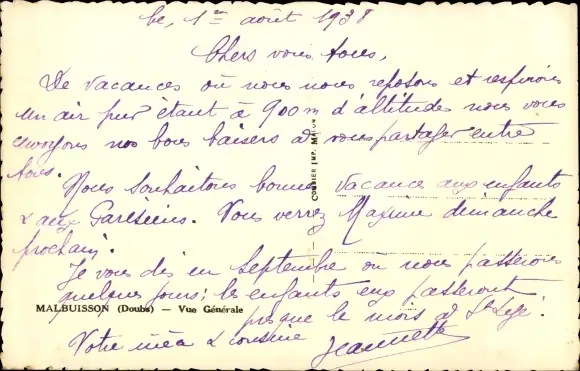 Le, 1er août 1938
Chers vous tous,
De vacances où nous nous reposons et respirons
un air pur étant à 900m d'altitude nous vous
envoyons nos bons baisers à vous partager entre
tous.
Nous souhaitons bonnes vacances aux enfants
& aux Parisiens. Vous verrez Maxime dimanche
prochain.
Je vous dis en Septembre où nous passerons
quelques jours; les enfants eux passeront
presque le mois à St
Votre & cousine Jeannette
MALBUISSON (Doubs) — Vue Générale
COMBIER IMP. MACON